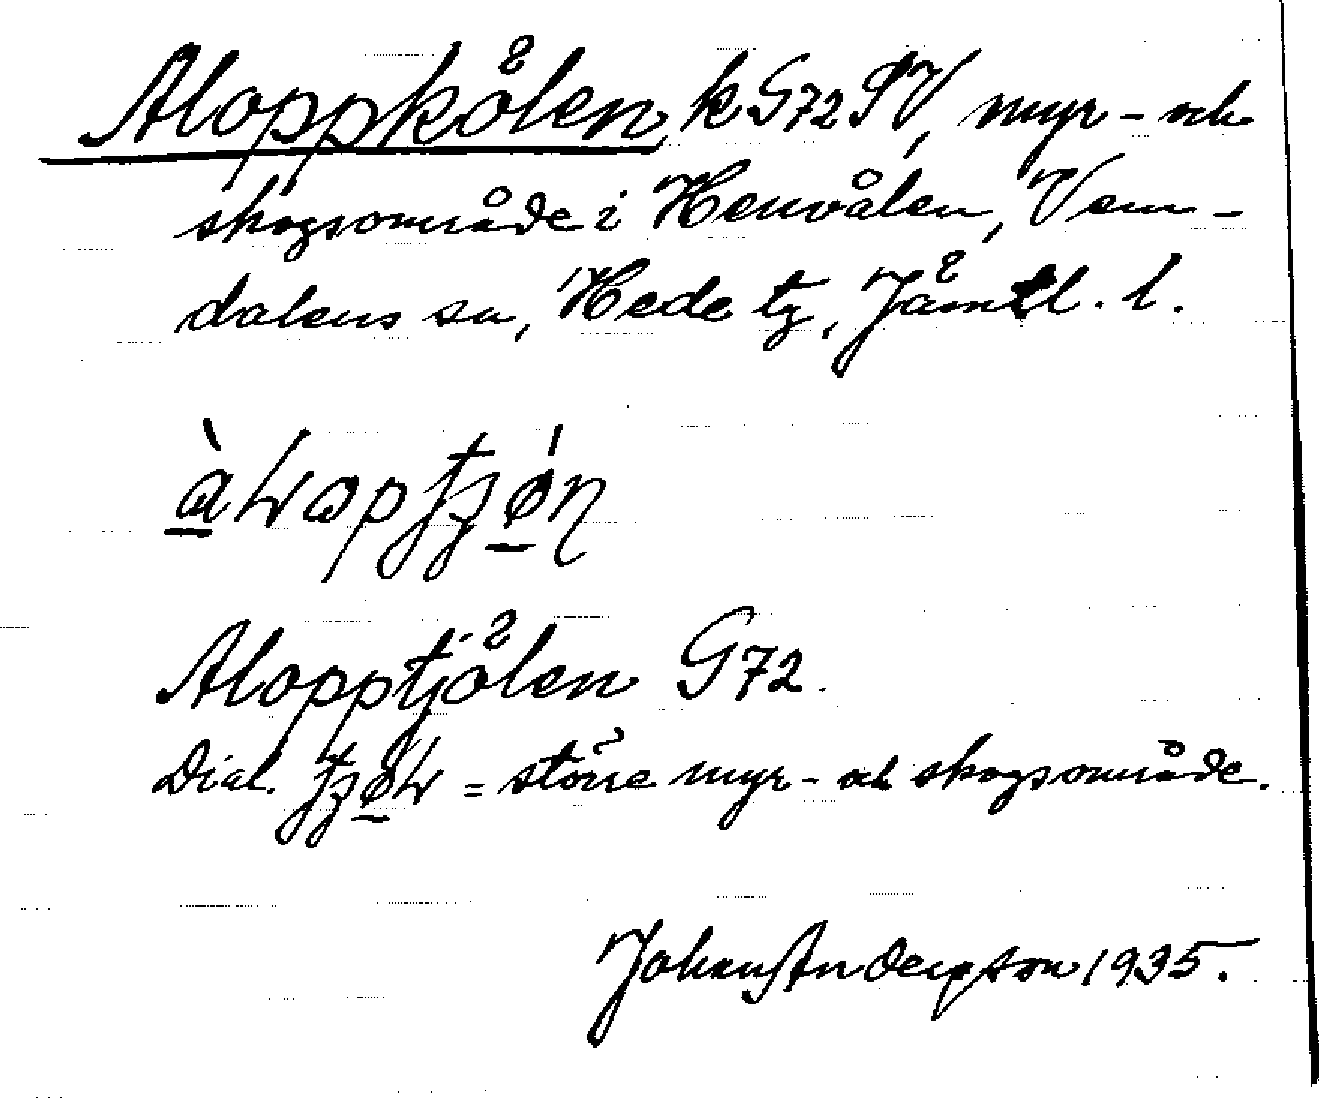 Aloppkölen k. G72 SV, myr- och
skogsområde i Henvålen, Vem-
dalens sn, Hede tg, Jämtl. l.
Alopptjölen G72.
Dial. = större myr- och skogsområde.
Johan Anderson 1935.